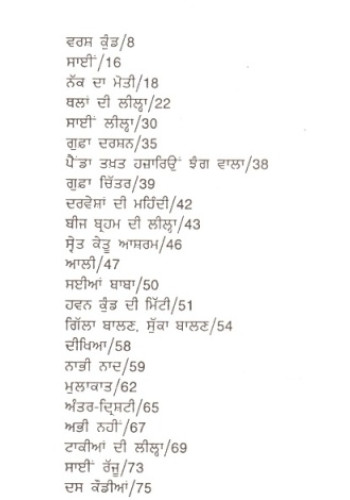 ਵਰਸ਼ ਕੁੰਡ/8
ਸਾਈਂ/16
ਨੱਕ ਦਾ ਮੋਤੀ/18
ਥਲਾਂ ਦੀ ਲੀਲ੍ਹਾ/22
ਸਾਈਂ ਲੀਲ੍ਹਾ/30
ਗੁਫ਼ਾ ਦਰਸ਼ਨ/35
ਪੈਂਡਾ ਤਖ਼ਤ ਹਜ਼ਾਰਿਉਂ ਝੰਗ ਵਾਲਾ/38
ਗੁਫ਼ਾ ਚਿੱਤਰ/39
ਦਰਵੇਸ਼ਾਂ ਦੀ ਮਹਿੰਦੀ/42
ਬੀਜ ਬ੍ਰਹਮ ਦੀ ਲੀਲ੍ਹਾ/43
ਸ੍ਵੇਤ ਕੇਤੂ ਆਸ਼ਰਮ/46
ਆਲੀ/47
ਸਈਆਂ ਬਾਬਾ/50
ਹਵਨ ਕੁੰਡ ਦੀ ਮਿੱਟੀ/51
ਗਿੱਲਾ ਬਾਲਣ, ਸੁੱਕਾ ਬਾਲਣ/54
ਦੀਖਿਆ/58
ਨਾਭੀ ਨਾਦ/59
ਮੁਲਾਕਾਤ/62
ਅੰਤਰ-ਦ੍ਰਿਸ਼ਟੀ/65
ਅਭੀ ਨਹੀਂ/67
ਟਾਕੀਆਂ ਦੀ ਲੀਲ੍ਹਾ/69
ਸਾਈਂ ਰੱਜੂ/73
ਦਸ ਕੌਡੀਆਂ/75